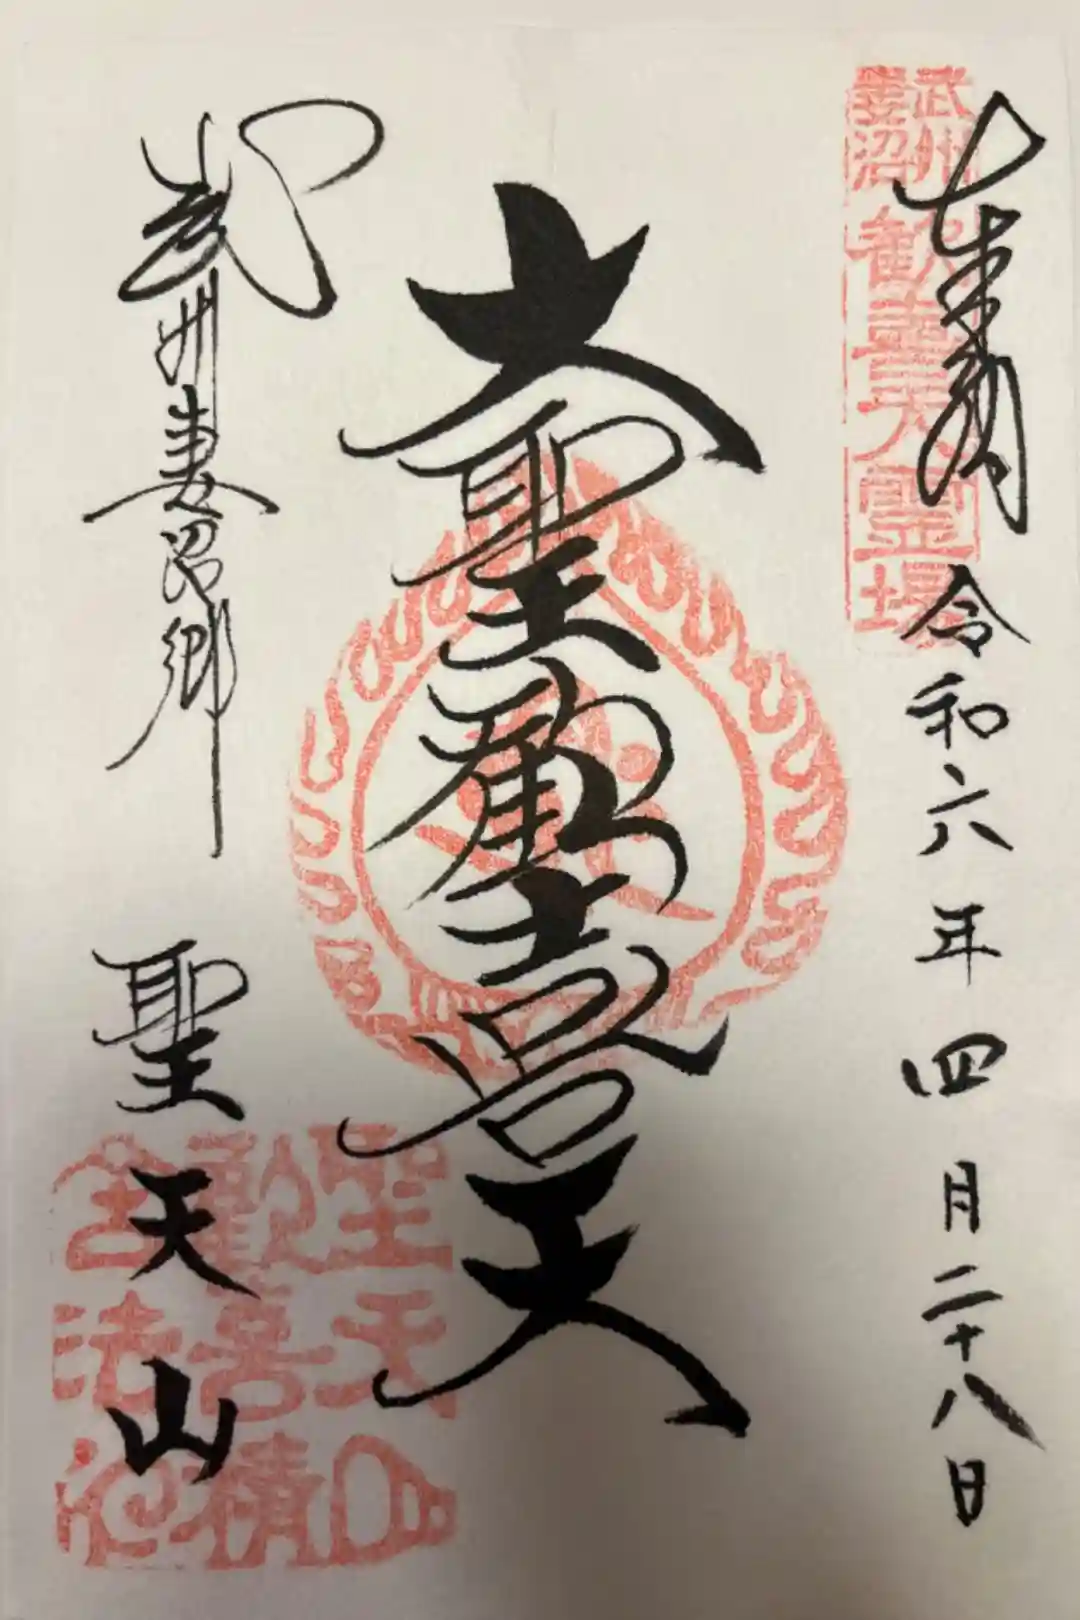 奉拝
令和六年四月二十八日
武州
妻沼
歓喜天霊場
大聖歓喜天
武州妻沼郷
聖天山